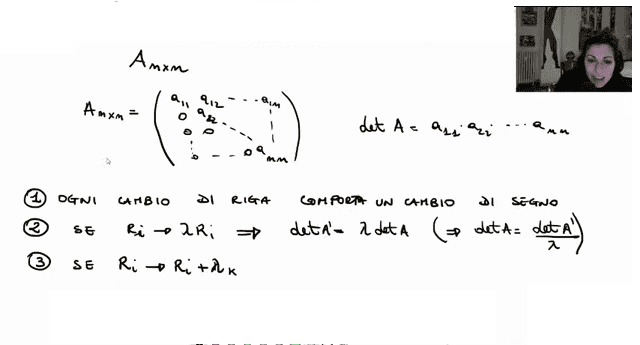 A n×n
A n×n = ( a₁₁ a₁₂ --- a₁ₙ
0 a₂₂
0 0
0 --- 0 aₙₙ )
det A = a₁₁ · a₂₂ · ... aₙₙ
① OGNI CAMBIO DI RIGA COMPORTA UN CAMBIO DI SEGNO
② SE Rᵢ → λRᵢ ⇒ det A' = λ det A (⇒ det A = det A'/λ)
③ SE Rᵢ → Rᵢ + λₖ